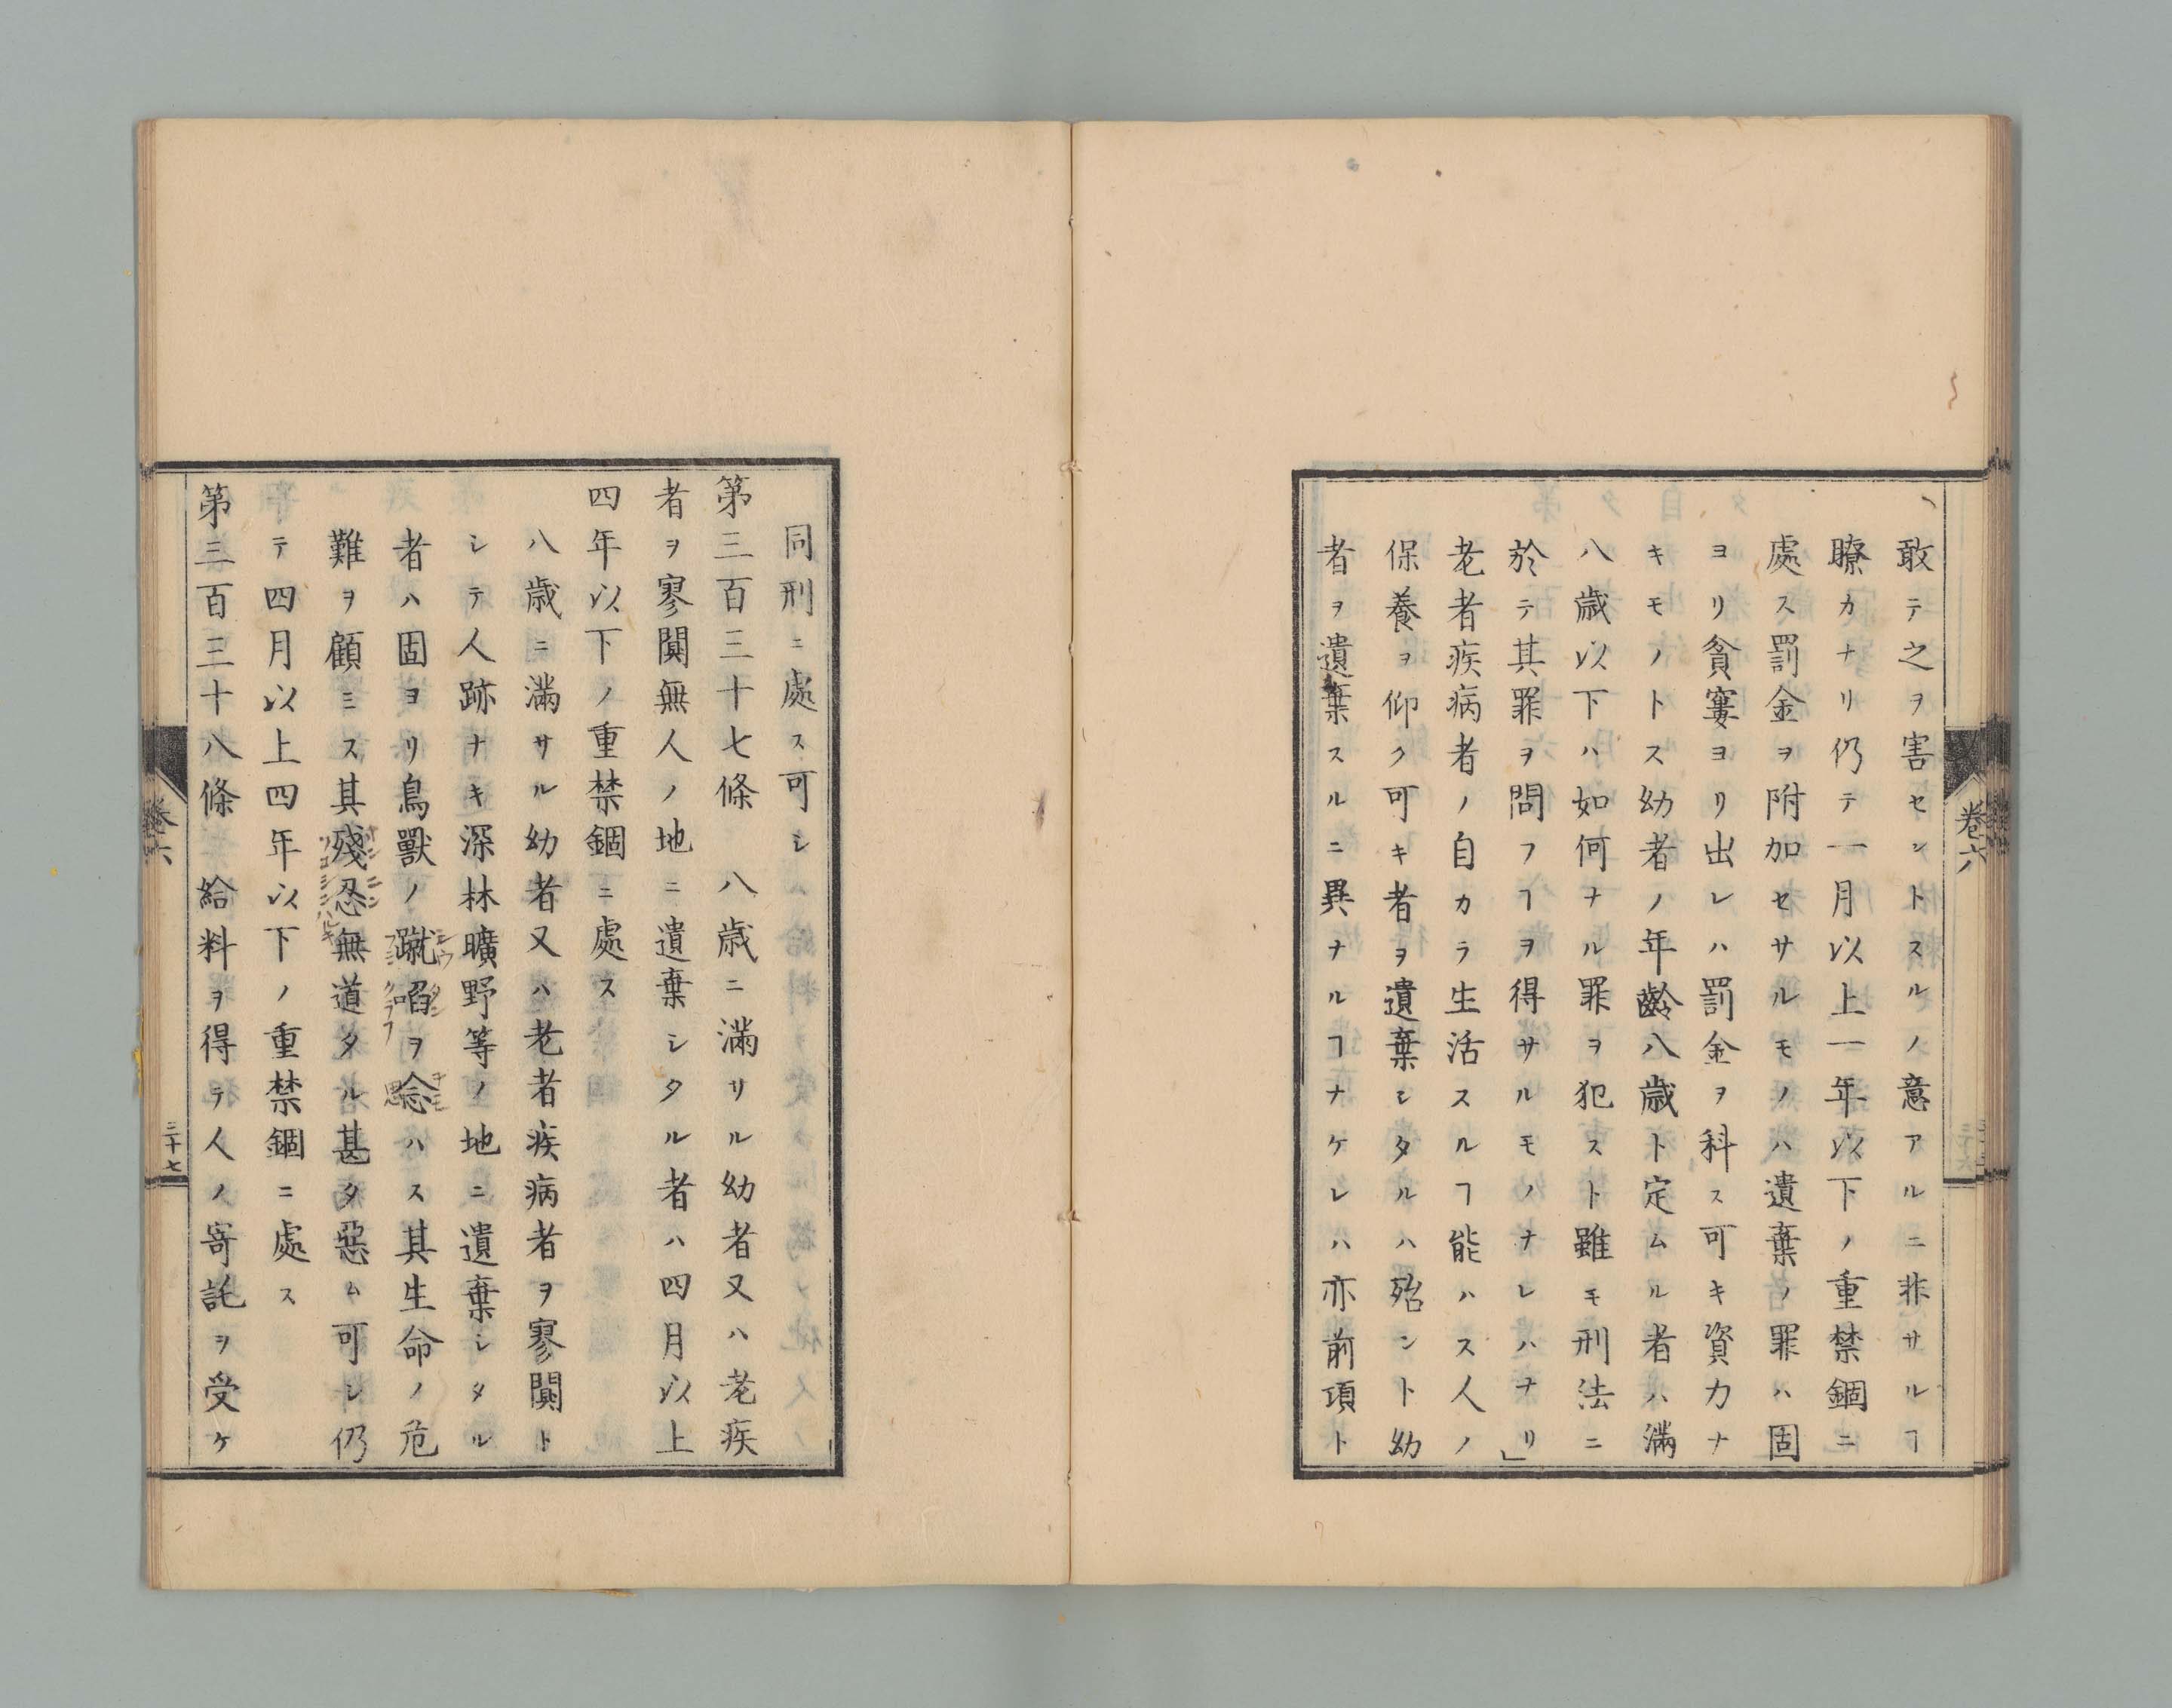 敢テ之ヲ害セントスルノ意アルニ非サルヿ
瞭カナリ仍テ一月以上一年以下ノ重禁錮ニ
處ス罰金ヲ附加セサルモノハ遺棄ノ罪ハ固
ヨリ貧窶ヨリ出レハ罰金ヲ科ス可キ資力ナ
キモノトス幼者ノ年齡八歳ト定ムル者ハ滿
八歳以下ハ如何ナル罪ヲ犯スト雖モ刑法ニ
於テ其罪ヲ問フヿヲ得サルモノナレハナリ」
老者疾病者ノ自カラ生活スルヿ能ハス人ノ
保養ヲ仰ク可キ者ヲ遺棄シタルハ殆ント幼
者ヲ遺棄スルニ異ナルヿナケレハ亦前項ト
卷六
同刑ニ處ス可シ
第三百三十七條 八歳ニ滿サル幼者又ハ老疾
者ヲ寥闃無人ノ地ニ遺棄シタル者ハ四月以上
四年以下ノ重禁錮ニ處ス
八歳ニ滿サル幼者又ハ老者疾病者ヲ寥闃ト
シテ人跡ナキ深林曠野等ノ地ニ遺棄シタル
者ハ固ヨリ鳥獸ノ蹴啗ヲ念ハス其生命ノ危
難ヲ顧ミス其殘忍無道タル甚タ惡ム可シ仍
テ四月以上四年以下ノ重禁錮ニ處ス
第三百三十八條 給料ヲ得テ人ノ寄託ヲ受ケ
卷六
三十七